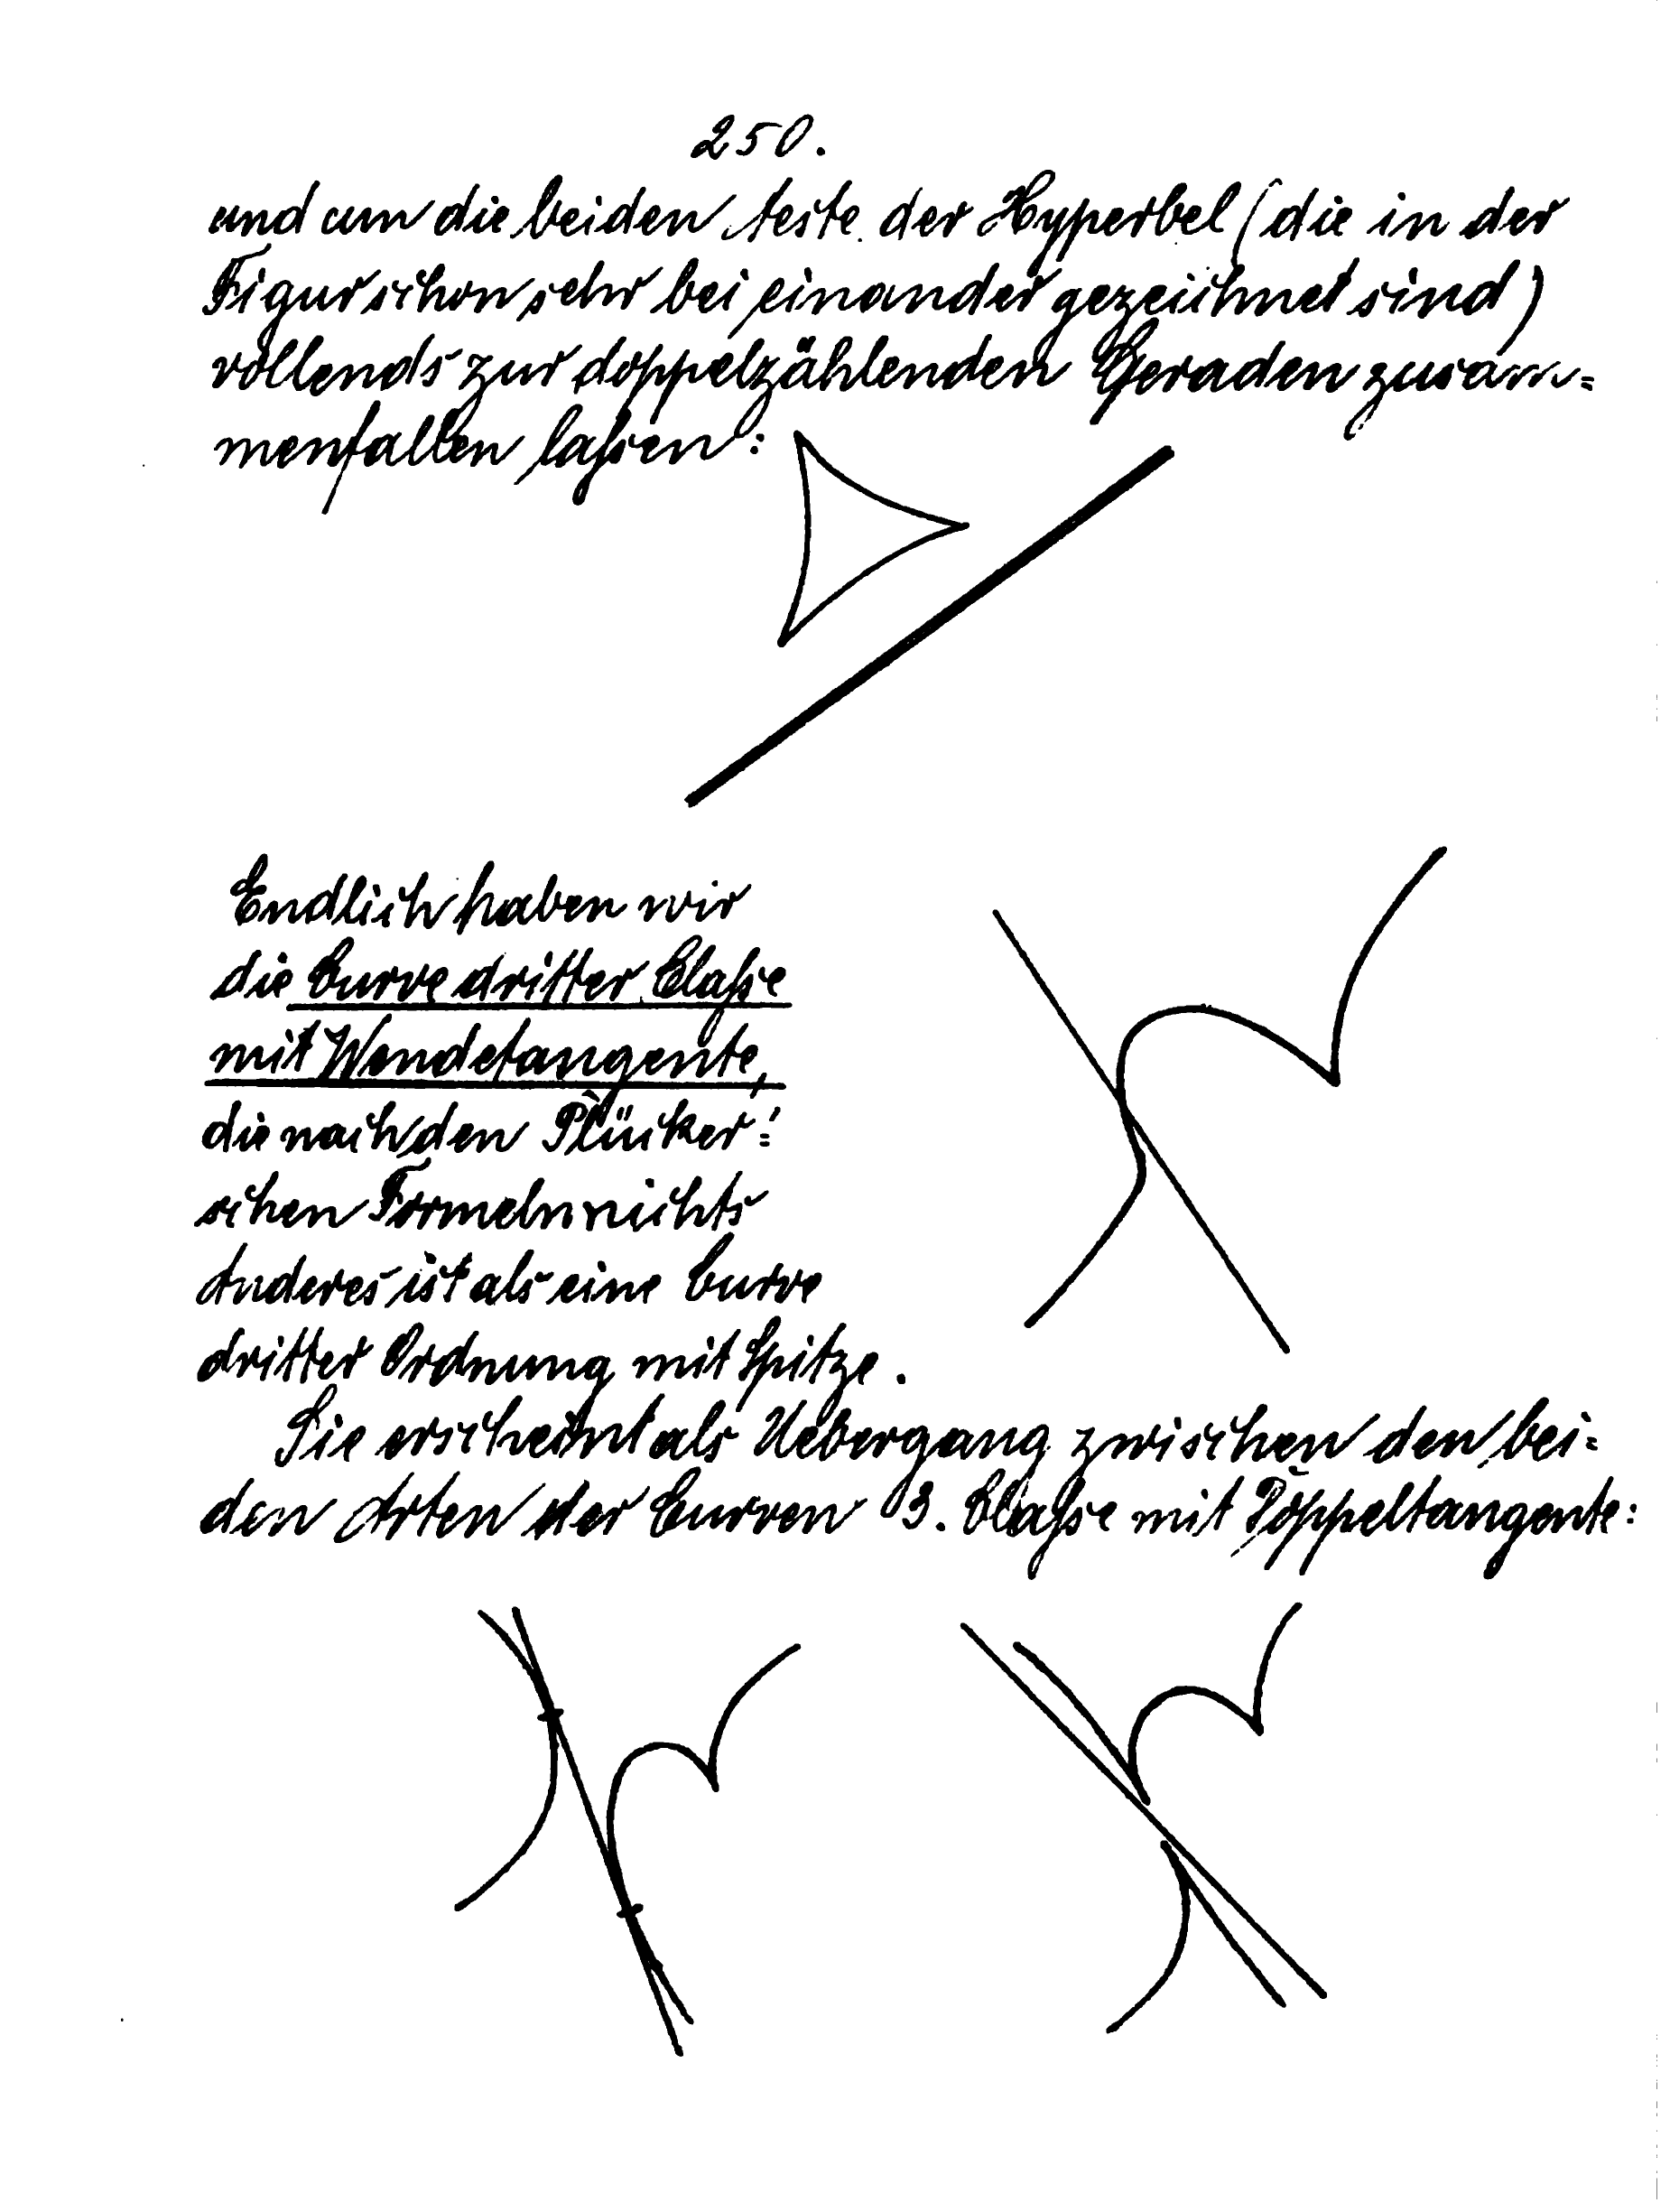 250.
und um die beiden Aeste der Hyperbel (die in der
Figur schon sehr bei einander gezeichnet sind)
vollends zur doppelzählenden Geraden zusam=
menfallen laßen:
Endlich haben wir
die Curve dritter Claße
mit Wendetangente,
die nach den Plücker=
schen Formeln nichts
Anderes ist als eine Curve
dritter Ordnung mit Spitze.
Sie erscheint als Uebergang zwischen den bei=
den Arten der Curven 3. Claße mit Doppeltangente: